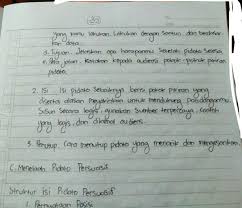 yang kamu lakukan. Lakukan dengan santun dan berdasar-
kan data.
3. Tujuan. Jelaskan apa harapanmu setelah pidato selesai
4. Peta jalan. Katakan kepada audiens pokok-pokok pikiran
pidato.
2. Isi. Isi pidato sebaiknya berisi pokok pikiran yang
disertai alasan meyakinkan untuk mendukung pandanganmu.
Susun secara logis, gunakan sumber terpercaya, contoh
yang logis, dan dikenal audiens.
3. Penutup. Cara menutup pidato yang menarik dan mengesankan.
C. Menelaah Pidato Persuasif
Struktur Isi Pidato Persuasif
1. Pernyataan Posisi